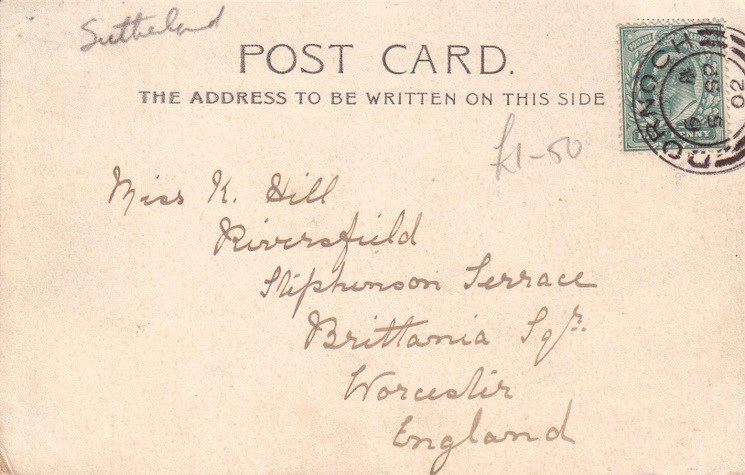 Sutherland
POST CARD.
THE ADDRESS TO BE WRITTEN ON THIS SIDE
£1-50
DORNOCH
SP 5
02
Miss K. Hill
Riversfield
Stephenson Terrace
Brittania Sqr.
Worcester
England